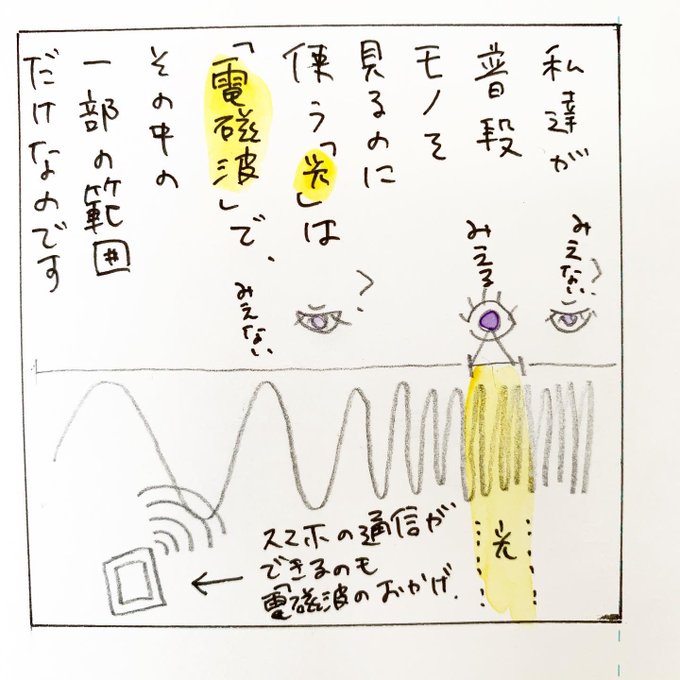 私達が
普段
モノを
見るのに
使う「光」は
「電磁波」で、
その中の
一部の範囲
だけなのです
みえない
?
みえる
みえない
?
光
スマホの通信が
できるのも
電磁波のおかげ.